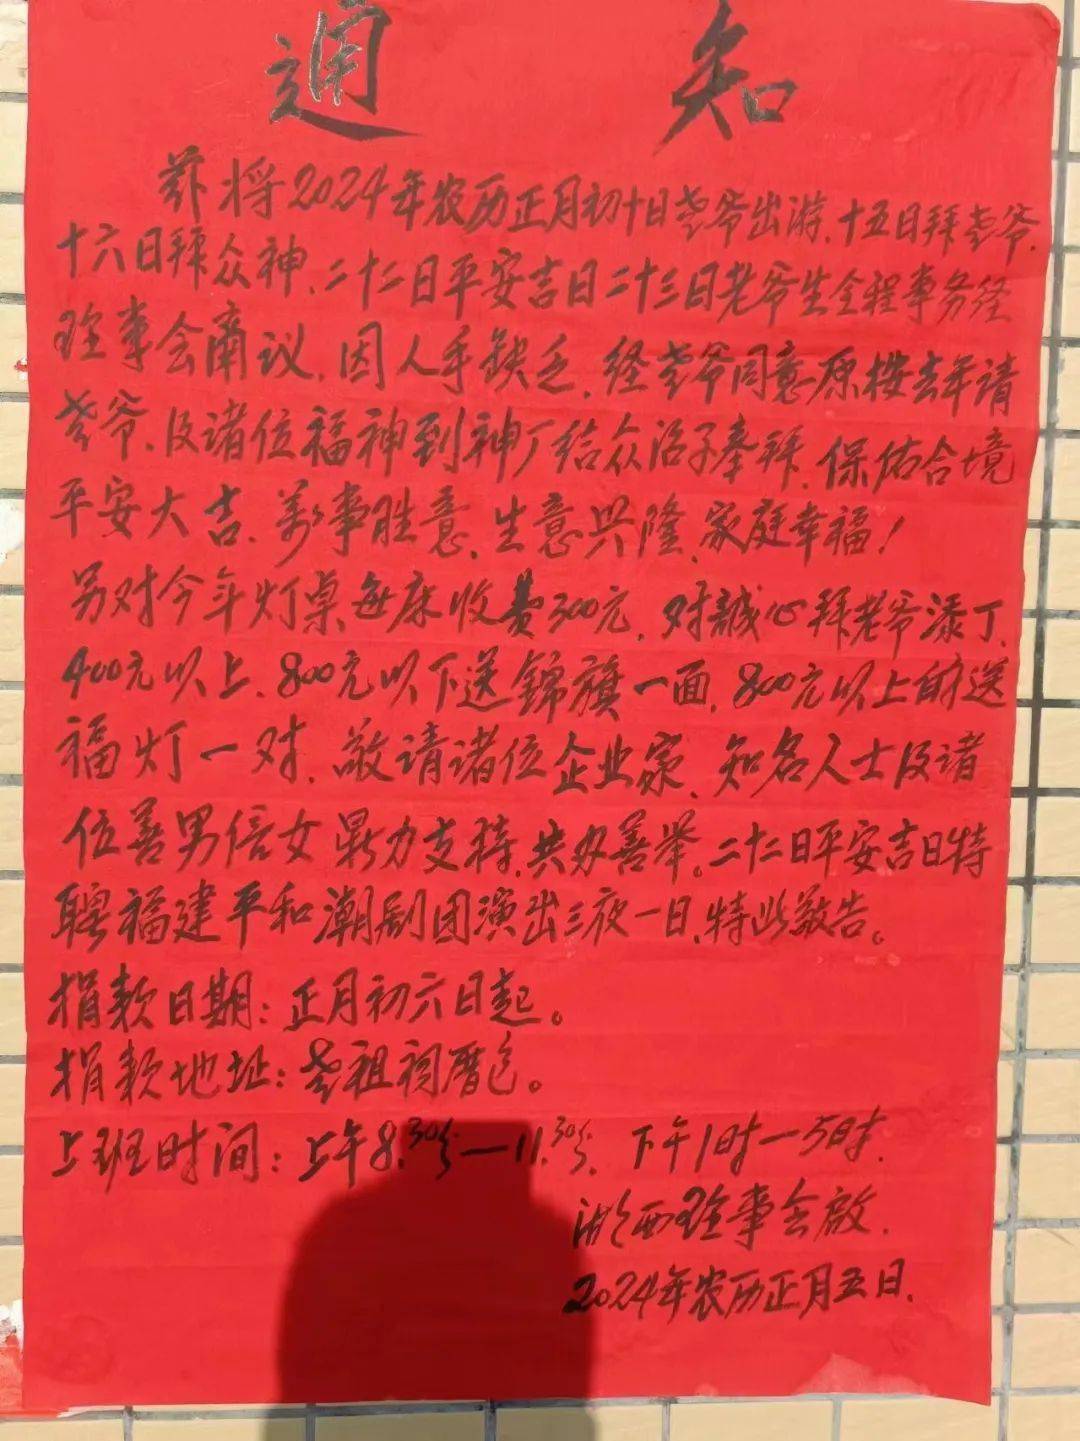 通知
兹将2024年农历正月初十日老爷出游、十五日拜老爷、
十六日拜众神、二十二日平安吉日二十三日老爷生全程事务经
理事会商议,因人手缺乏,经老爷同意原按去年请
老爷、及诸位福神到神厂给众治子奉拜,保佑合境
平安大吉、万事胜意,生意兴隆、家庭幸福!
另对今年灯桌每床收费300元,对誠心拜老爷添丁、
400元以上、800元以下送錦旗一面,800元以上的送
福灯一对,敬请诸位企业家、知名人士及诸
位善男信女鼎力支持,共办善举。二十二日平安吉日特
聘福建平和潮剧团演出三夜一日,特此敬告。
捐款日期:正月初六日起。
捐款地址:老祖祠厝包。
上班时间:上午8.30分—11.30分,下午1时—5时.
西理事会啟.
2024年农历正月五日.